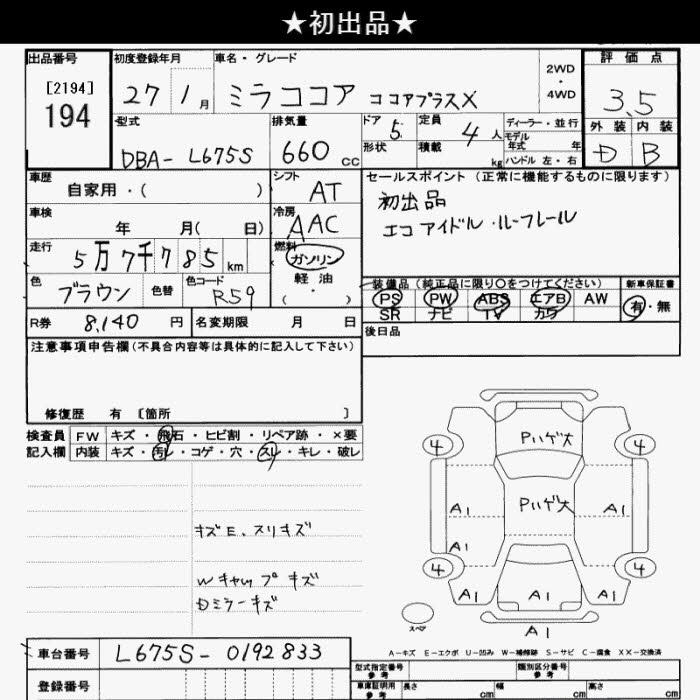 ★初出品★
出品番号
[2194]
194
初度登録年月
27 1月
車名・グレード
ミラココア ココアプラスX
2WD
・
4WD
評価点
3.5
型式
DBA- L675S
排気量
660 cc
ドア 5
形状
定員 4人
積載 kg
ディーラー・並行
モデル
年式 年
ハンドル 左・右
外装 内装
D B
車歴
自家用・( )
シフト
AT
セールスポイント (正常に機能するものに限ります)
初出品
エコアイドル・ル-フレール
車検
年 月( 日)
冷房
AAC
走行
5万7千785km
燃料
ガソリン
軽油
( ・ )
色
ブラウン
色替
色コード
R59
装備品 (純正品に限り〇をつけてください)
PS PW ABS エアB AW
SR ナビ TV カワ
新車保証書
有・無
R券 8,140 円
名変期限 月 日
後日品
注意事項申告欄(不具合内容等は具体的に記入して下さい)
修復歴 有 〔箇所 〕
検査員
記入欄
FW キズ・飛石・ヒビ割・リペア跡・×要
内装 キズ・汚レ・コゲ・穴・スレ・キレ・破レ
キズE、スリキズ
Wキャップキズ
Dミラーキズ
4 Pハゲ大 4
A1 Pハゲ大 A1
A1
4 4
A1 A1 A1
スペア
A1
A-キズ E-エクボ U-凹み W-補修跡 S-サビ C-腐食 XX-交換済
車台番号 L675S-0192833
登録番号
型式指定番号
参考
類別区分番号
参考
車庫証明用
参考
長さ cm 幅 cm 高さ cm